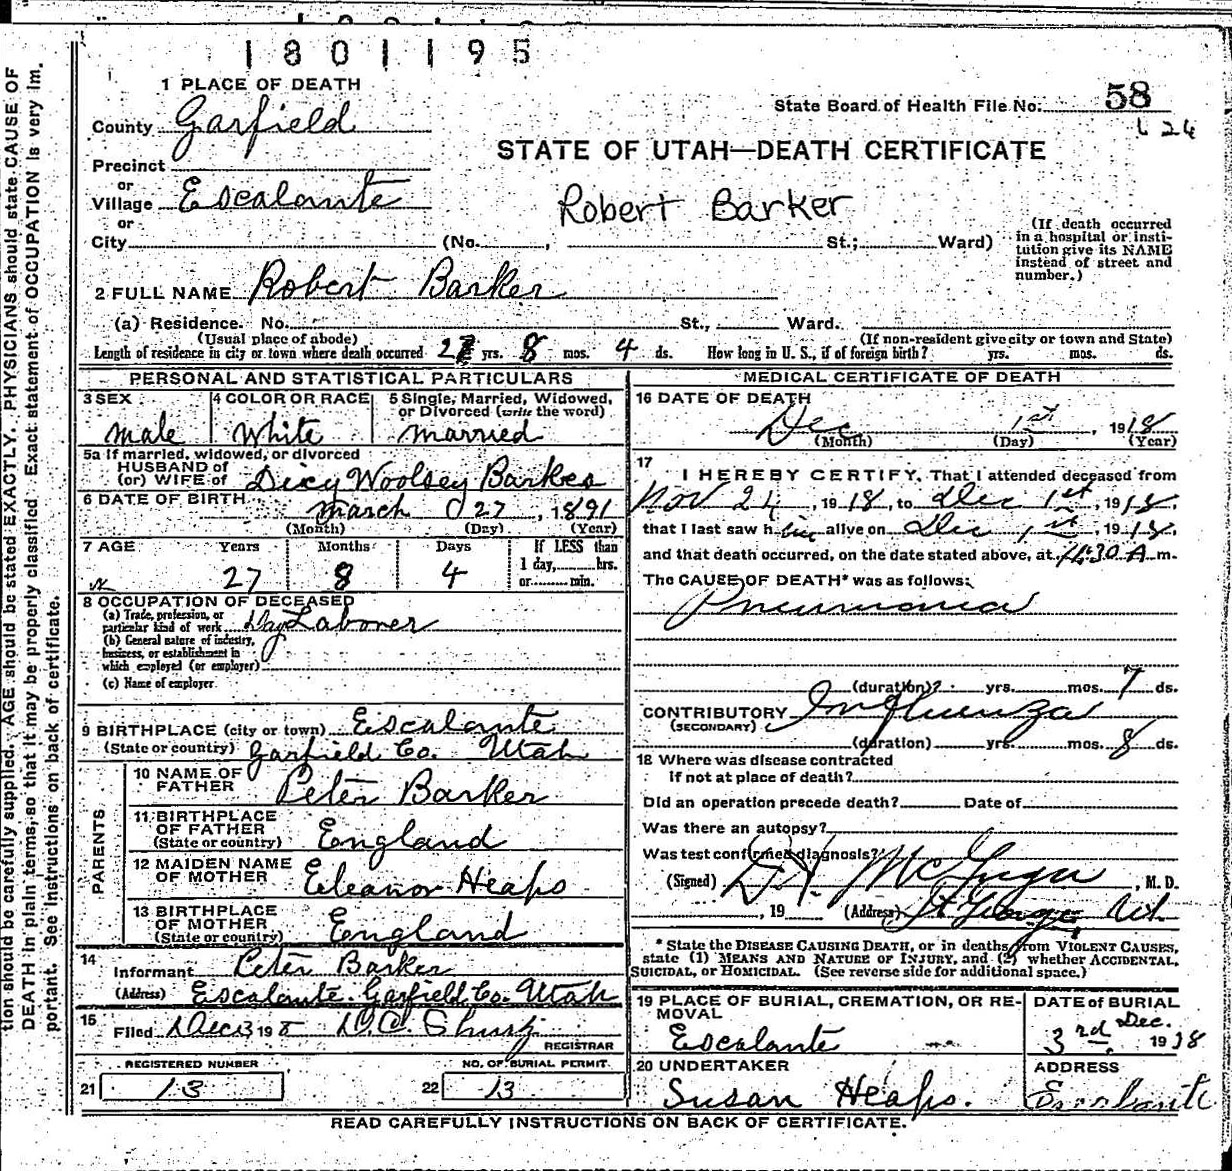 1801195
1 PLACE OF DEATH
State Board of Health File No. 58
County Garfield
STATE OF UTAH—DEATH CERTIFICATE
Precinct
or
Village Escalante
Robert Barker
or
City (No. , St.; Ward)
(If death occurred in a hospital or institution give its NAME instead of street and number.)
2 FULL NAME Robert Barker
(a) Residence. No. St., Ward.
(Usual place of abode) (If non-resident give city or town and State)
Length of residence in city or town where death occurred 27 yrs. 8 mos. 4 ds. How long in U. S., if of foreign birth? yrs. mos. ds.
PERSONAL AND STATISTICAL PARTICULARS
3 SEX 4 COLOR OR RACE 5 Single, Married, Widowed, or Divorced (write the word)
Male White Married
5a If married, widowed, or divorced
HUSBAND of
(or) WIFE of Dicy Woolsey Barker
6 DATE OF BIRTH March 27, 1891
(Month) (Day) (Year)
7 AGE Years Months Days If LESS than
1 day, hrs.
or min.
27 8 4
8 OCCUPATION OF DECEASED
(a) Trade, profession, or
particular kind of work Day Laborer
(b) General nature of industry,
business, or establishment in
which employed (or employer)
(c) Name of employer
9 BIRTHPLACE (city or town) Escalante
(State or country) Garfield Co. Utah
PARENTS
10 NAME OF
FATHER Peter Barker
11 BIRTHPLACE
OF FATHER
(State or country) England
12 MAIDEN NAME
OF MOTHER Eleanor Heaps
13 BIRTHPLACE
OF MOTHER
(State or country) England
14
Informant Peter Barker
(Address) Escalante Garfield Co. Utah
15
Filed Dec 3 198
REGISTRAR
REGISTERED NUMBER NO. OF BURIAL PERMIT
21 13 22 13
MEDICAL CERTIFICATE OF DEATH
16 DATE OF DEATH
Dec 1st, 1918
(Month) (Day) (Year)
17
I HEREBY CERTIFY, That I attended deceased from
Nov 24, 1918, to Dec 1st, 1918,
that I last saw him alive on Dec 1st, 1918,
and that death occurred, on the date stated above, at A m.
The CAUSE OF DEATH* was as follows:
Pneumonia
(duration)? yrs. mos. 7 ds.
CONTRIBUTORY Influenza
(SECONDARY)
(duration) yrs. mos. 8 ds.
18 Where was disease contracted
if not at place of death?
Did an operation precede death? Date of
Was there an autopsy?
Was test confirmed diagnosis?
(Signed) , M. D.
, 19 (Address) St George Ut
* State the DISEASE CAUSING DEATH, or in deaths from VIOLENT CAUSES,
state (1) MEANS AND NATURE OF INJURY, and (2) whether ACCIDENTAL,
SUICIDAL, or HOMICIDAL. (See reverse side for additional space.)
19 PLACE OF BURIAL, CREMATION, OR RE-
MOVAL DATE of BURIAL
Escalante 3rd Dec. 1918
20 UNDERTAKER ADDRESS
Susan Heaps. Escalante
READ CAREFULLY INSTRUCTIONS ON BACK OF CERTIFICATE.
tion should be carefully supplied. AGE should be stated EXACTLY. PHYSICIANS should state CAUSE OF
DEATH in plain terms, so that it may be properly classified. Exact statement of OCCUPATION is very im.
portant. See instructions on back of certificate.